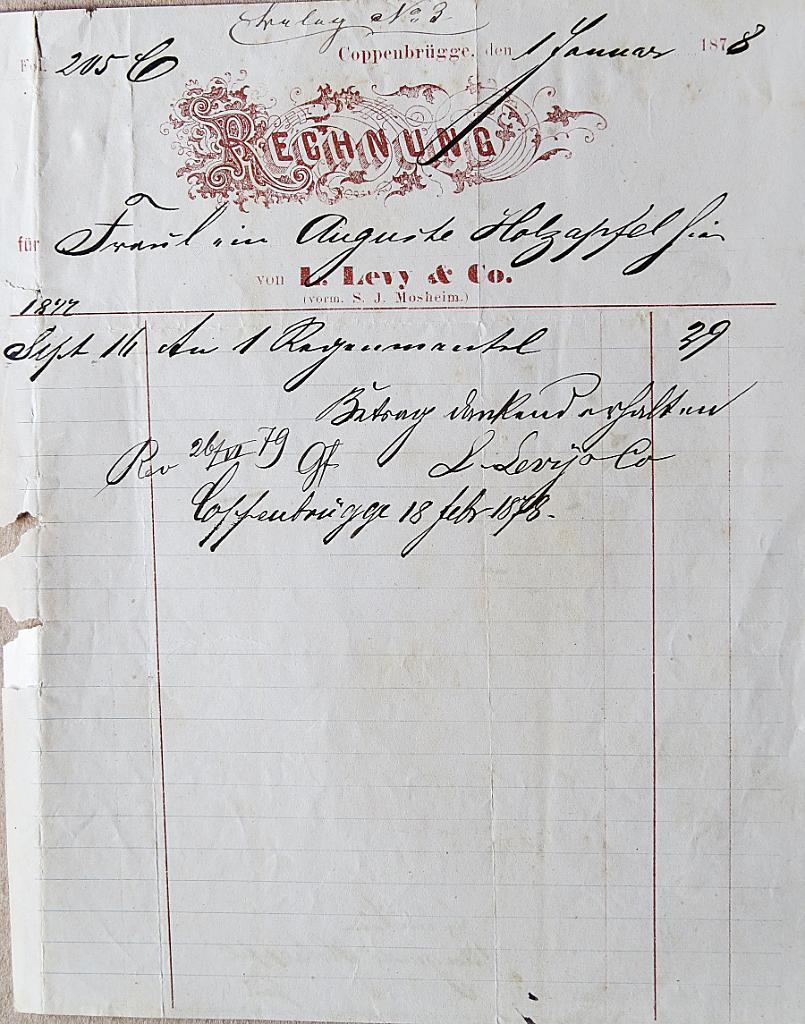 Anlag No 3
Coppenbrügge, den 1 Januar 1878
Fol. 205 C
RECHNUNG
für Fräulein Auguste Holzapfel hier
von L. Levy & Co.
(vorm. S. J. Mosheim.)
1877
Sept 16 An 1 Regenmantel 29
Betrag dankend erhalten
Rev 26/VI 79 L. Levy & Co
Coppenbrügge 18 febr 1878.